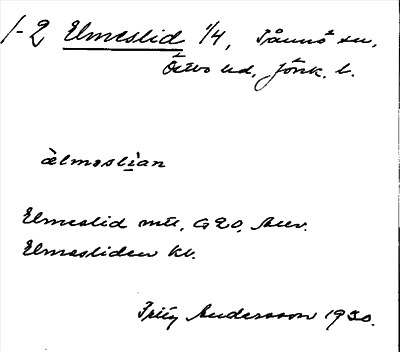 1-2 Elmeslid 1/4, Tånnö sn,
Östbo hd, Jönk. l.
älmeslian
Elmeslid mtl, G20, Auv.
Elmesliden kl.
Fritz Andersson 1930.